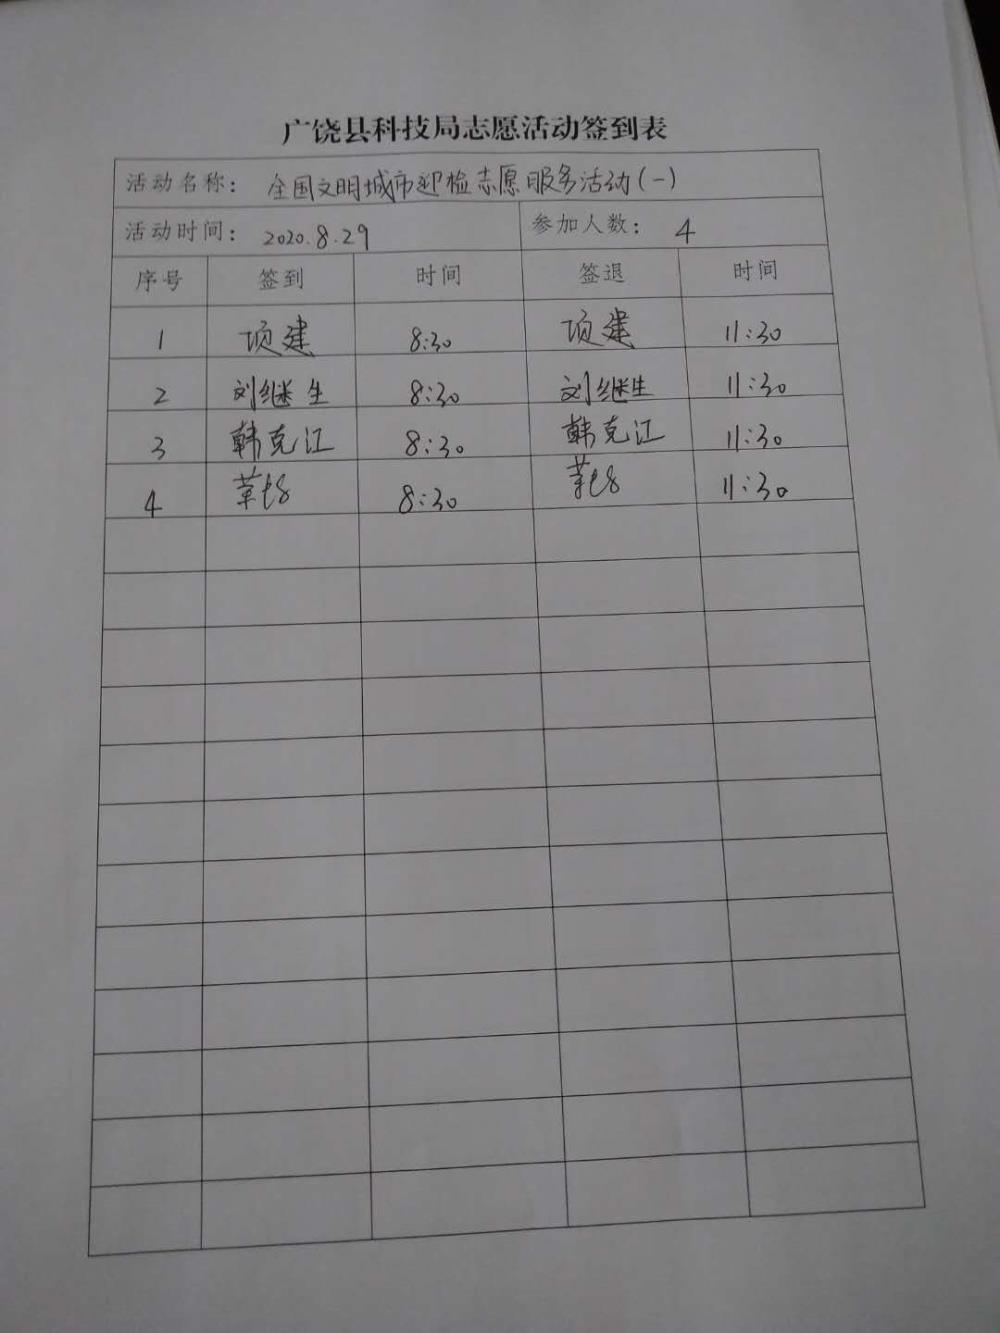 广饶县科技局志愿活动签到表
活动名称： 全国文明城市迎检志愿服务活动(一)
活动时间： 2020.8.29 参加人数： 4
序号 签到 时间 签退 时间
1 项建 8:30 项建 11:30
2 刘继生 8:30 刘继生 11:30
3 韩克江 8:30 韩克江 11:30
4 8:30 11:30